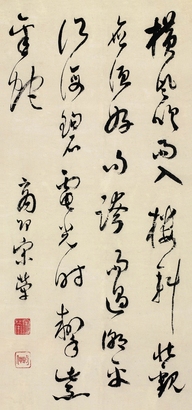 橫風吹雨入樓斜壯觀
應須好句誇雨過潮平
江海碧電光時掣紫
金蛇
商邱宋犖